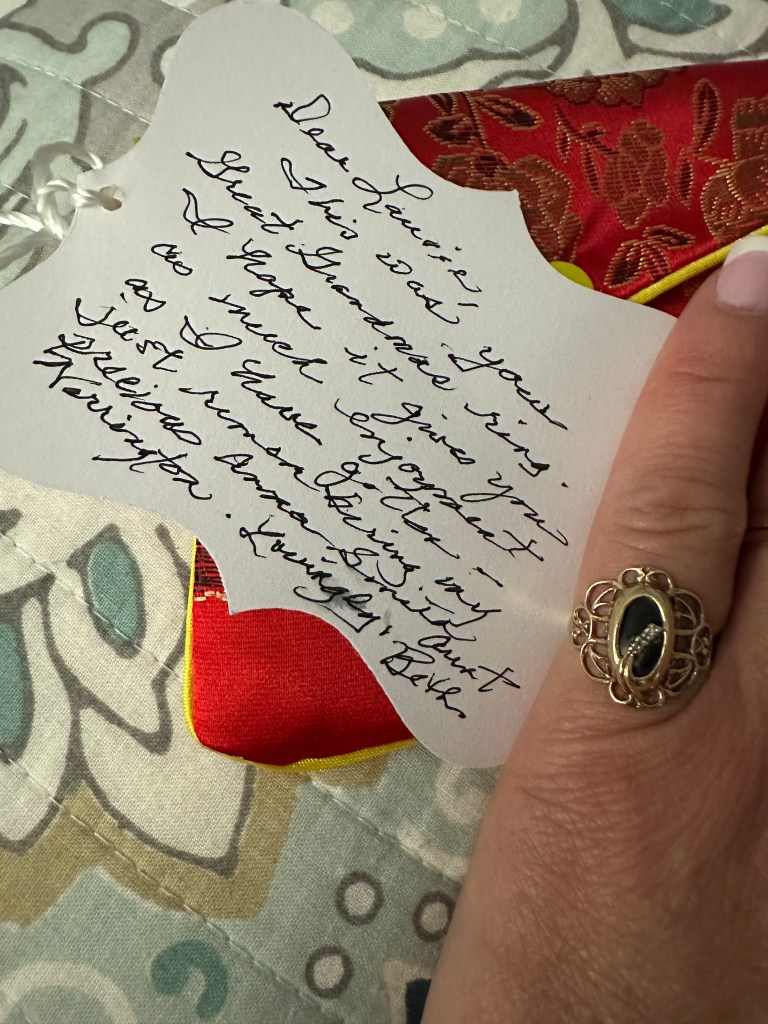 Dear Laurie,
This was your
Great Grandmas ring.
I hope it gives you
as much enjoyment
as I have gotten -
just remembering my
precious Anna Smith
Lovingly, Aunt
Beth.